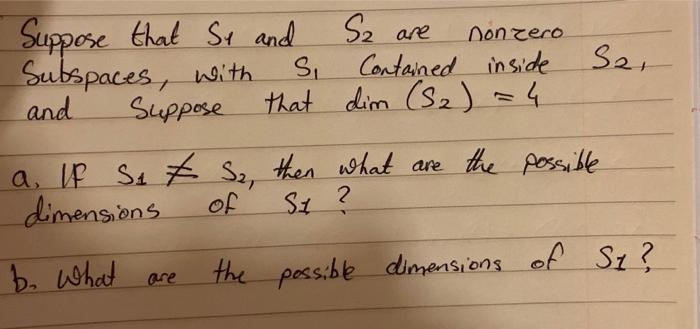 Suppose that S1 and S2 are nonzero
Subspaces, with S1 Contained inside S2,
and Suppose that dim (S2) = 4
a. IF S1 ≠ S2, then what are the possible
dimensions of S1 ?
b. What are the possible dimensions of S1?